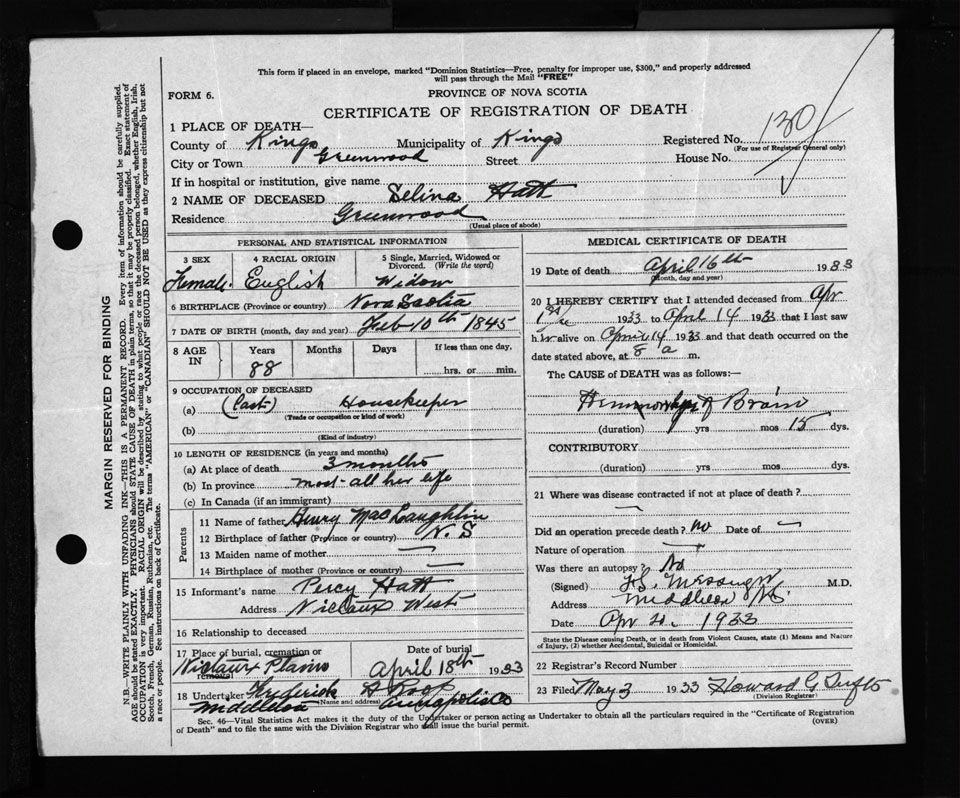 This form if placed in an envelope, marked "Dominion Statistics—Free, penalty for improper use, $300," and properly addressed
will pass through the Mail "FREE"
FORM 6.
PROVINCE OF NOVA SCOTIA
CERTIFICATE OF REGISTRATION OF DEATH
1 PLACE OF DEATH—
County of Kings Municipality of Kings Registered No. 130
(For use of Registrar General only)
City or Town Greenwood Street House No.
If in hospital or institution, give name
2 NAME OF DECEASED Selina Hatt
Residence Greenwood
(Usual place of abode)
PERSONAL AND STATISTICAL INFORMATION
3 SEX 4 RACIAL ORIGIN 5 Single, Married, Widowed or
Divorced. (Write the word)
Female. English Widow
6 BIRTHPLACE (Province or country) Nova Scotia
7 DATE OF BIRTH (month, day and year) Feb 10th 1845
8 AGE IN Years Months Days If less than one day,
88 hrs. or min.
9 OCCUPATION OF DECEASED
(a) (Last) Housekeeper
(Trade or occupation or kind of work)
(b)
(Kind of industry)
10 LENGTH OF RESIDENCE (in years and months)
(a) At place of death 3 months
(b) In province most all her life
(c) In Canada (if an immigrant)
Parents
11 Name of father Henry MacLaughlin
12 Birthplace of father (Province or country) N. S
13 Maiden name of mother —
14 Birthplace of mother (Province or country) —
15 Informant's name Percy Hatt
Address Nictaux West
16 Relationship to deceased
17 Place of burial, cremation or removal Date of burial
Nictaux Plains April 18th 1933
18 Undertaker Frederick A Roop
Middleton (Name and address) Annapolis Co
MEDICAL CERTIFICATE OF DEATH
19 Date of death April 16th 1933
(Month, day and year)
20 I HEREBY CERTIFY that I attended deceased from Apr
1st 1933 to April 14 1933 that I last saw
her alive on April 14 1933 and that death occurred on the
date stated above, at 8 a m.
The CAUSE of DEATH was as follows:—
Hemmorhge of Brain
(duration) yrs mos 15 dys.
CONTRIBUTORY
(duration) yrs mos dys.
21 Where was disease contracted if not at place of death?
—
Did an operation precede death? no Date of —
Nature of operation
Was there an autopsy? No
(Signed) M.D.
Address Middleton N.S.
Date Apr 1933
State the Disease causing Death, or in death from Violent Causes, state (1) Means and Nature
of Injury, (2) whether Accidental, Suicidal or Homicidal.
22 Registrar's Record Number
23 Filed May 3 1933 Howard G Tufts
(Division Registrar)
Sec. 46—Vital Statistics Act makes it the duty of the Undertaker or person acting as Undertaker to obtain all the particulars required in the "Certificate of Registration
of Death" and to file the same with the Division Registrar who shall issue the burial permit. (OVER)
MARGIN RESERVED FOR BINDING
N.B.—WRITE PLAINLY WITH UNFADING INK—THIS IS A PERMANENT RECORD. Every item of information should be carefully supplied.
AGE should be stated EXACTLY. PHYSICIANS should STATE CAUSE OF DEATH in plain terms, so that it may be properly classified. Exact statement of
OCCUPATION is very important. RACIAL ORIGIN will be described by stating to what people or race the deceased person belonged, whether English, Irish,
Scotch, French, German, Russian, Ruthenian, etc. The terms "AMERICAN" or "CANADIAN" SHOULD NOT BE USED as they express citizenship but not
a race or people. See instructions on back of Certificate.